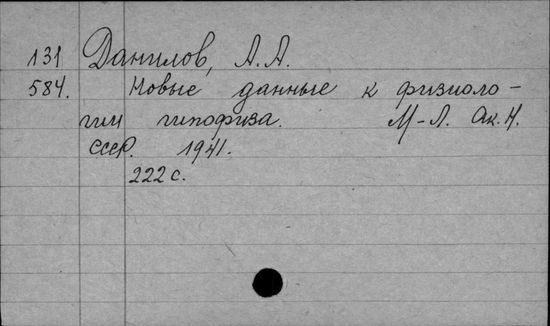 131 Данилов, А. А.
584. Новые данные к физиоло-
гии гипофиза. М-Л. Ак. Н.
СССР. 1941.
222 с.